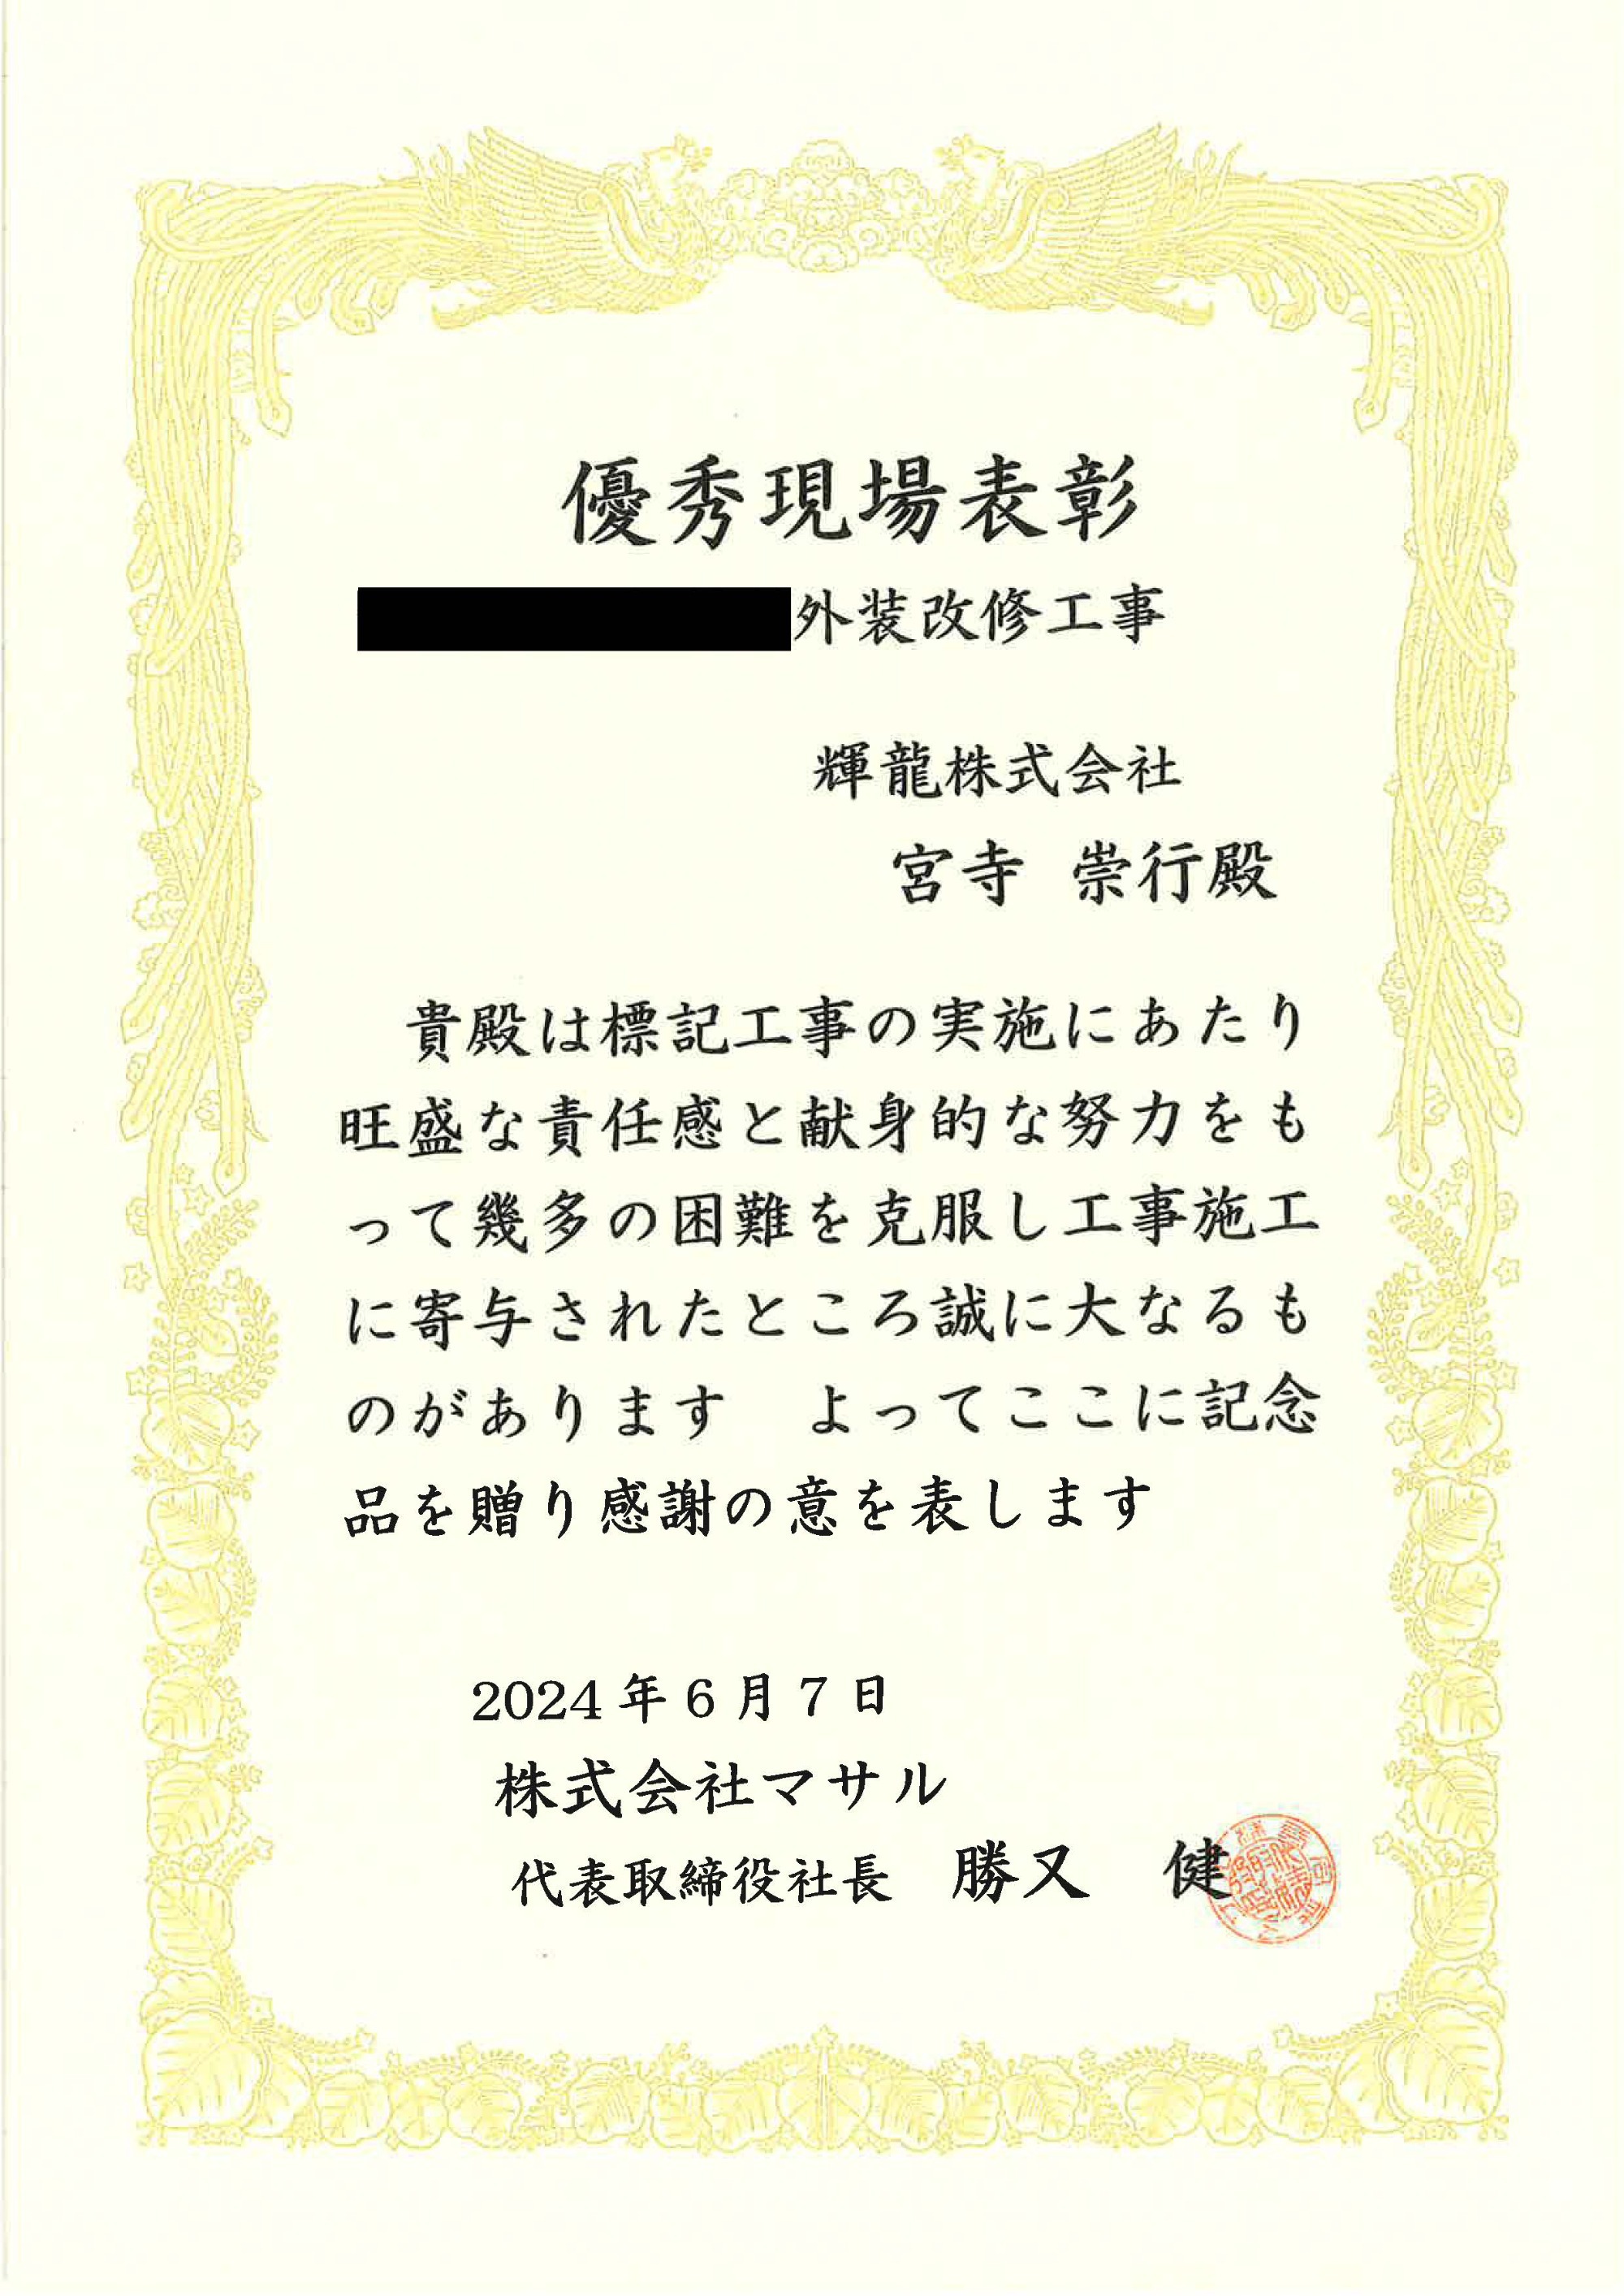 優秀現場表彰
外装改修工事
輝龍株式会社
宮寺 崇行殿
貴殿は標記工事の実施にあたり
旺盛な責任感と献身的な努力をも
って幾多の困難を克服し工事施工
に寄与されたところ誠に大なるも
のがあります　よってここに記念
品を贈り感謝の意を表します
2024年6月7日
株式会社マサル
代表取締役社長　勝又　健